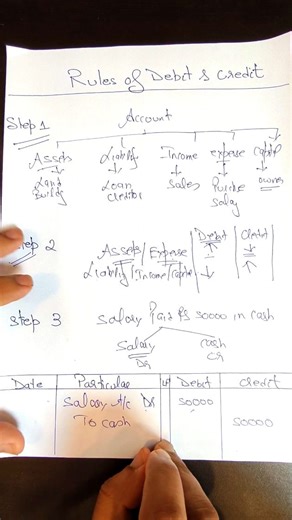 Rules of Debit & Credit
Step 1
Account
Assets Liability Income expense Capital
Land Loan Sales owner
Building Creditor Salary
Step 2
Debit Credit
Assets/Expense ↑ ↓
Liability/Income/Capital ↓ ↑
Step 3 Salary Paid Rs 50000 in cash
Salary cash
Dr Cr
Date Particular Debit Credit
Salary A/c Dr 50000
To cash 50000